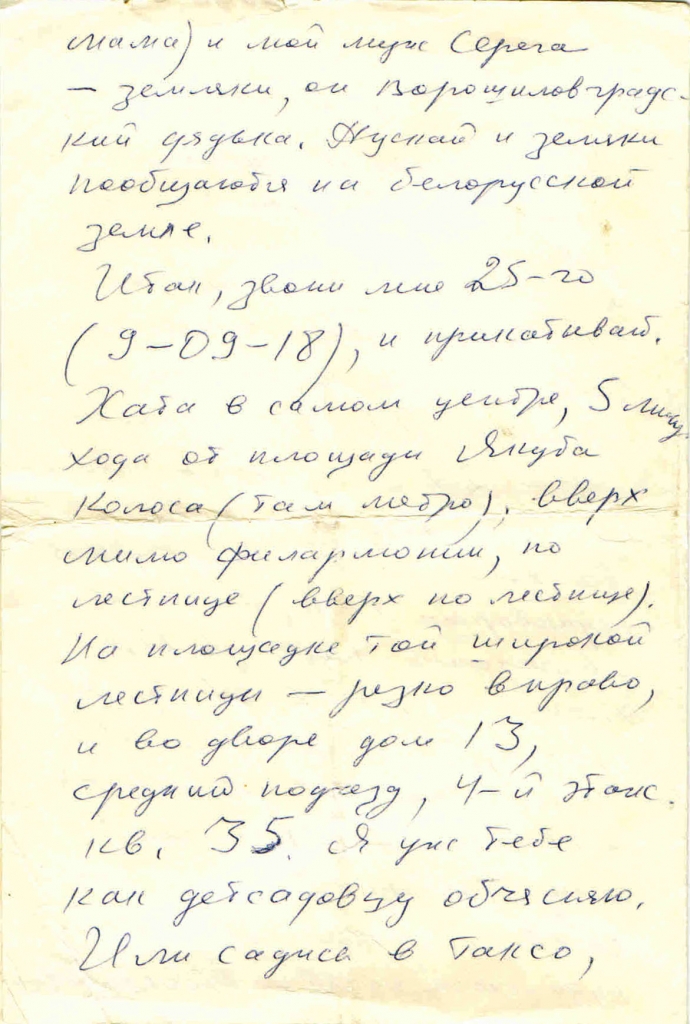 мама) и мой муж Серёга
— земляки, он Ворошиловградс-
кий дядька. Пускай и земляки
пообщаются на белорусской
земле.
Итак, звони мне 25-го
(9-09-18), и прикатывай.
Хата в самом центре, 5 мину
хода от площади Якуба
Коласа (там метро), вверх
мимо филармонии, по
лестнице (вверх по лестнице).
На площадке той широкой
лестницы — резко вправо,
и во дворе дом 13,
средний подъезд, 4-й этаж.
кв. 35. Я уж тебе
как детсадовцу объясняю.
Или садись в таксо,